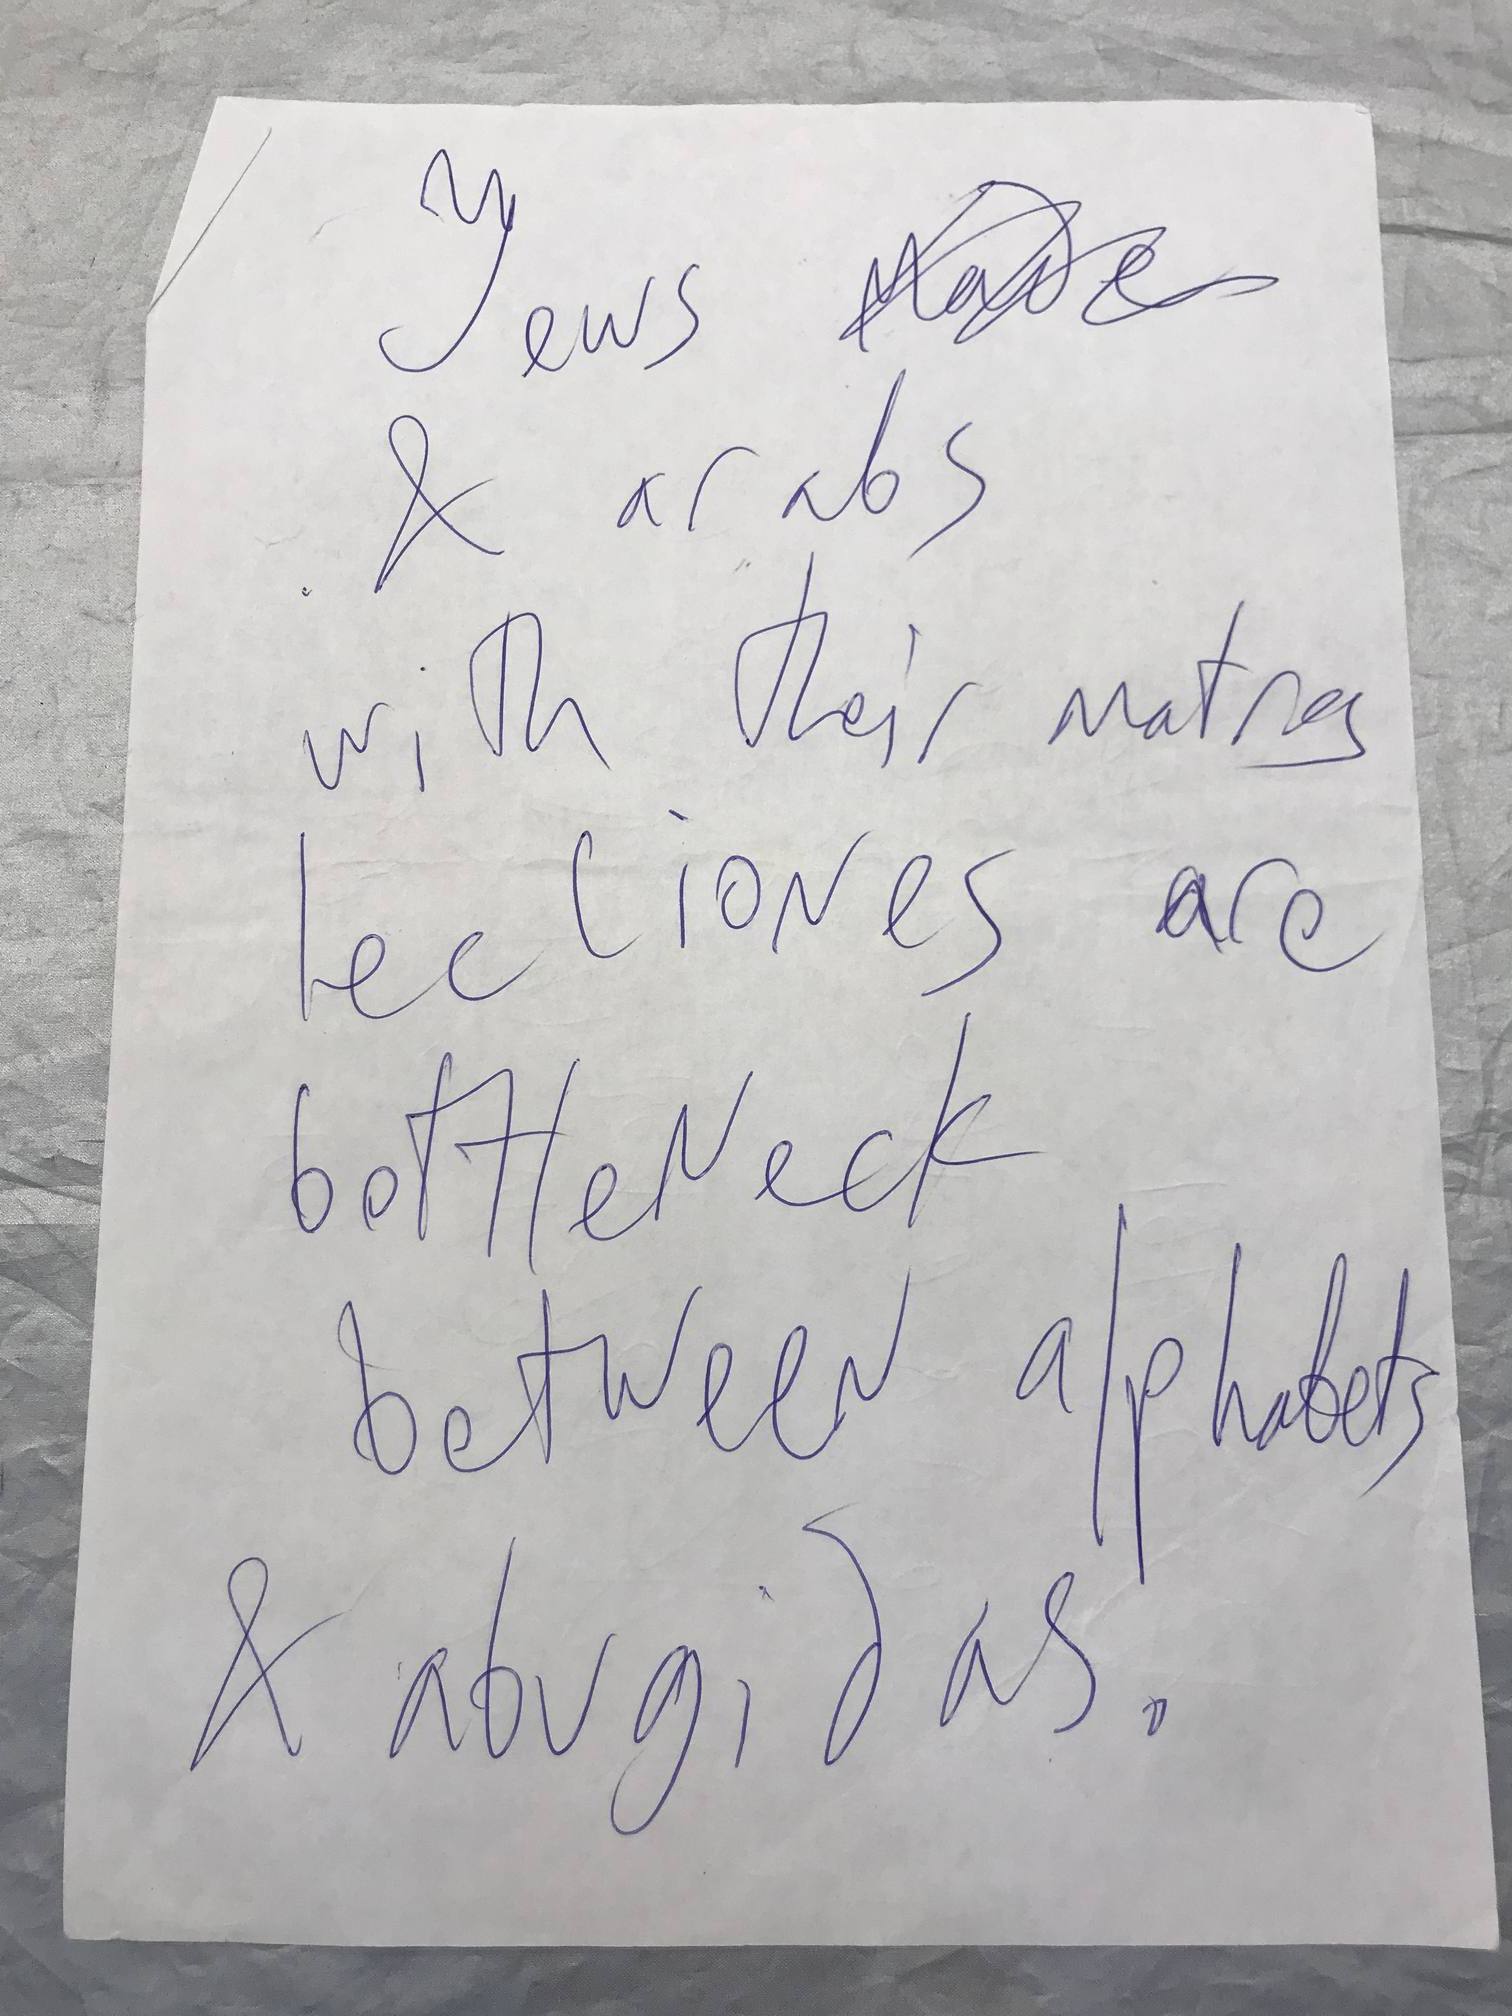 Yews
& arabs
with their matres
lectiones are
bottleneck
between alphabets
& abugidas.